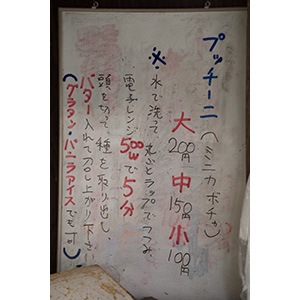 プッチーニ（ミニカボチャ）
大200円 中150円 小100円
※水で洗って丸ごとラップでつつみ
電子レンジ500Wで5分
頭を切って、種を取り出し
バター入れて召し上がり下さい
（グラタン・バニラアイスでも可）